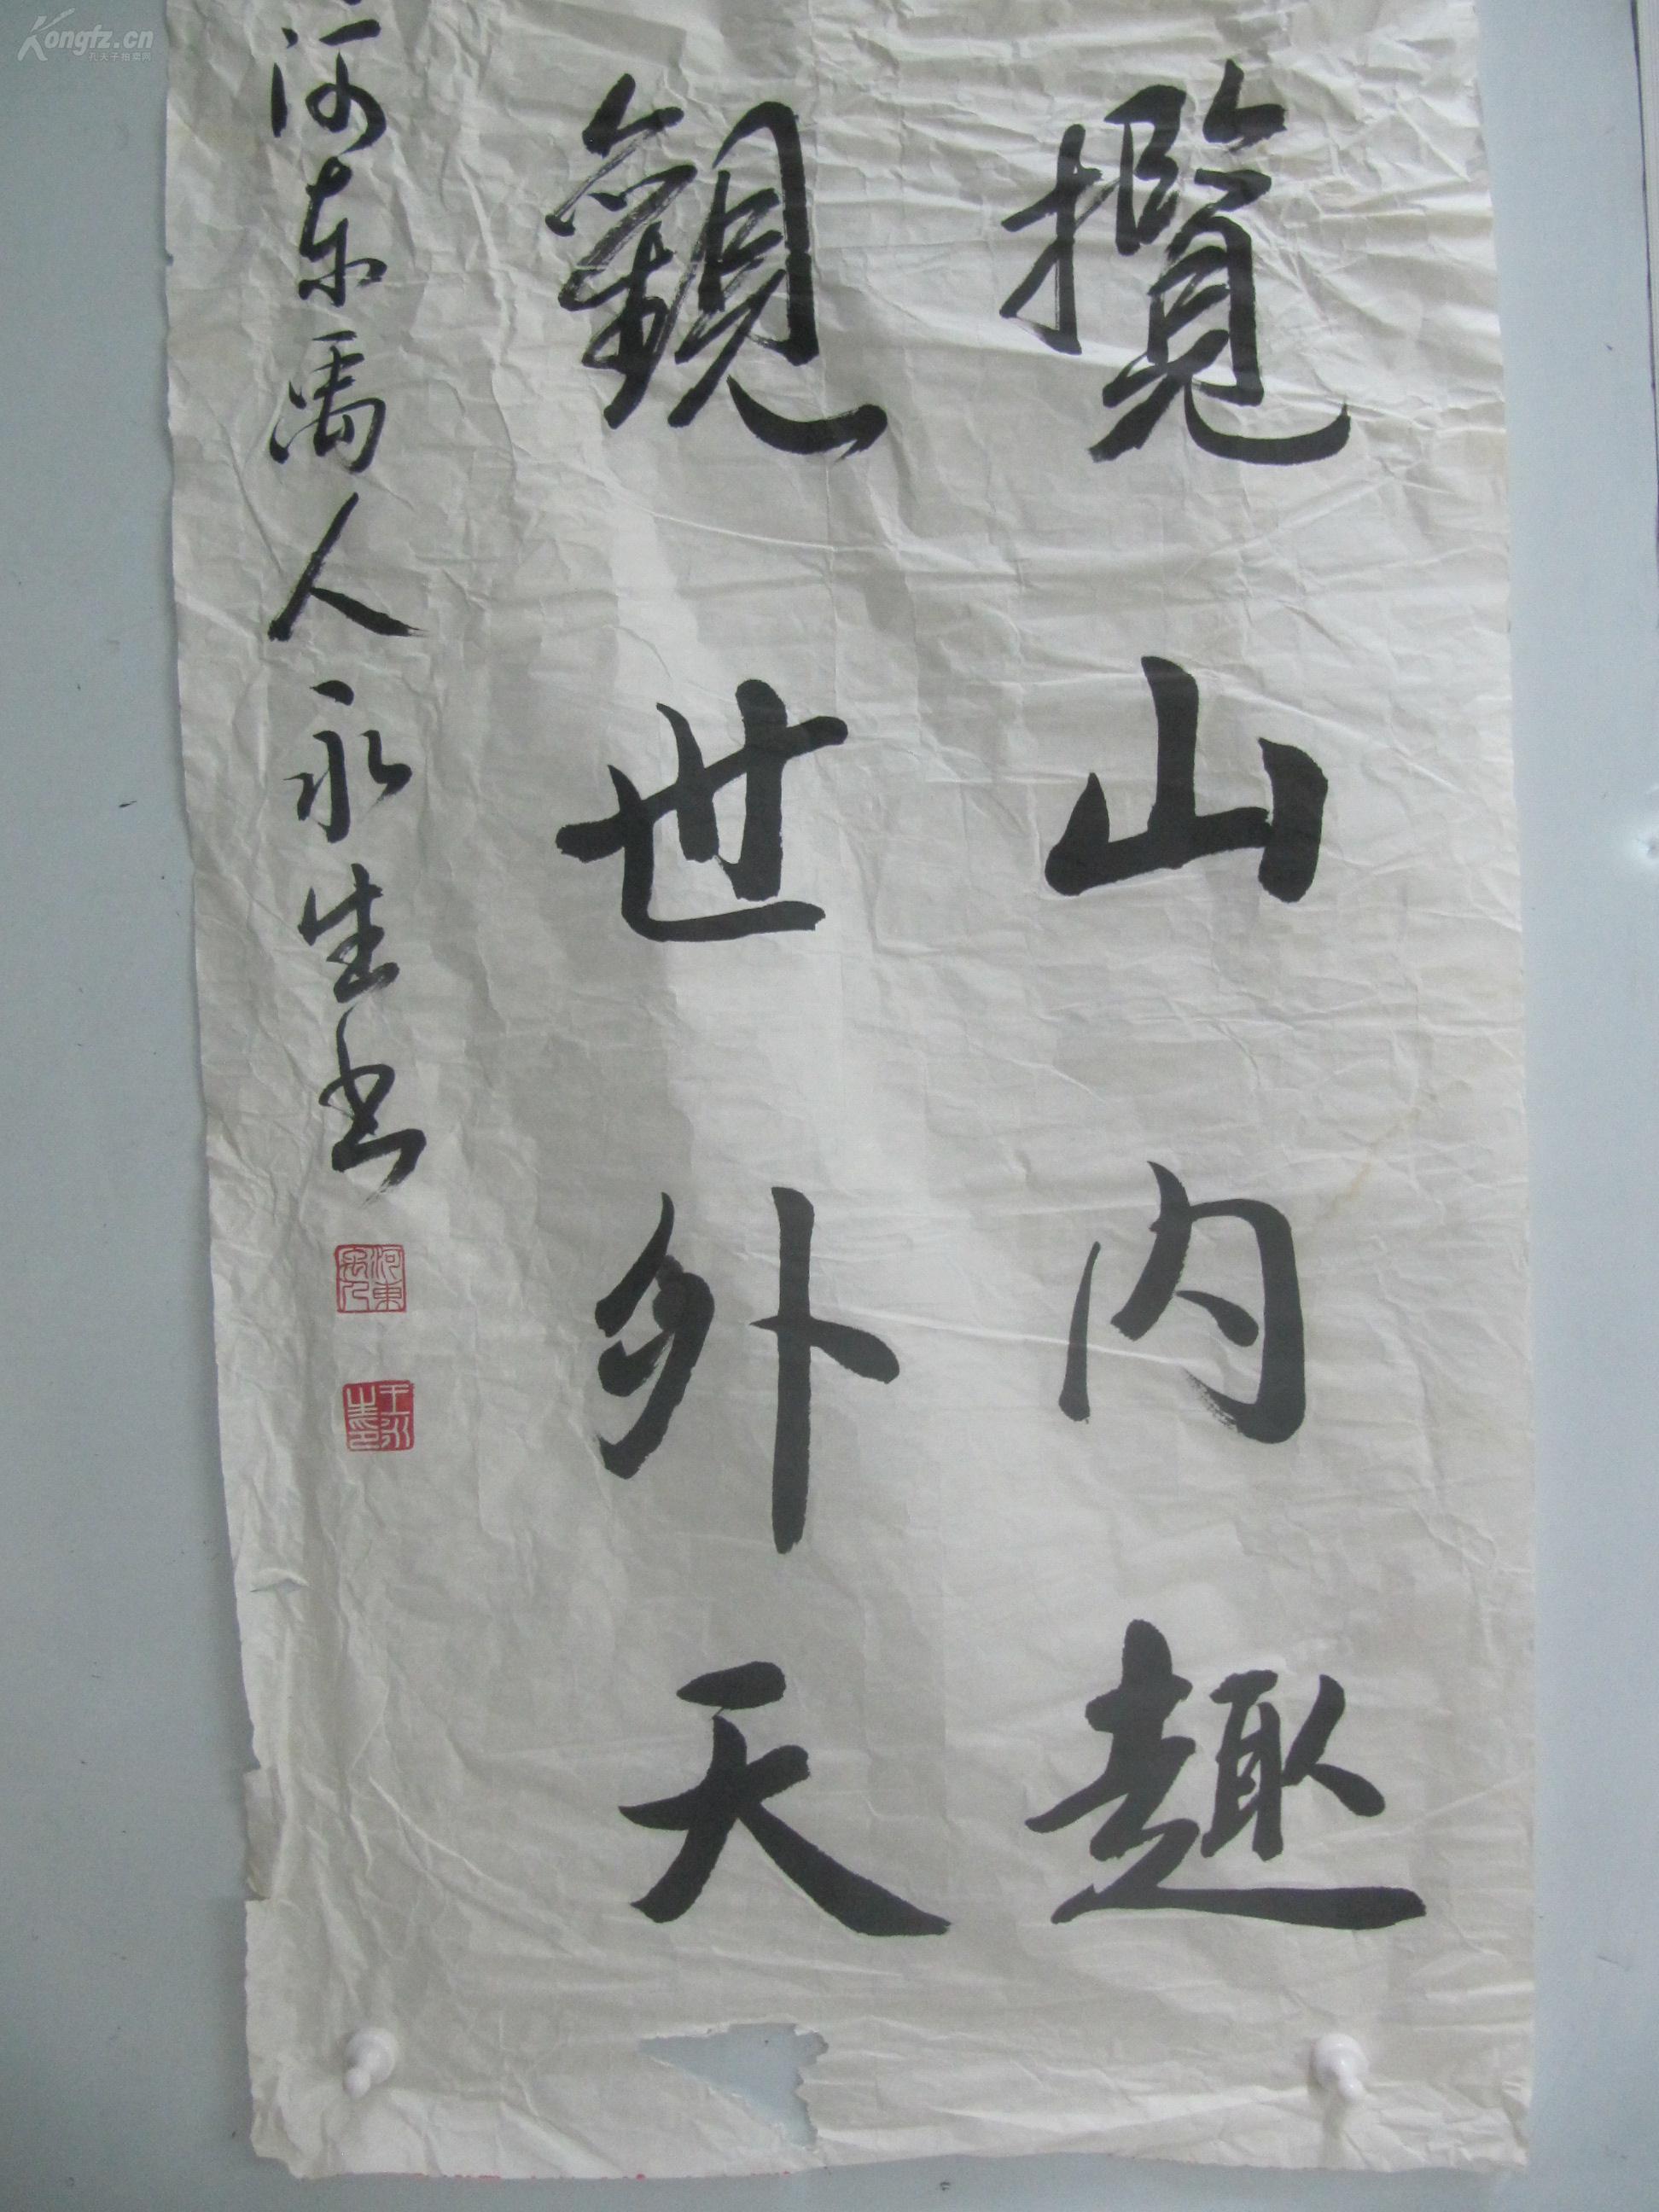 攬山内趣
觀世外天
河东禹人永生书
河東
王永生印
Kongfz.cn
孔夫子拍卖网